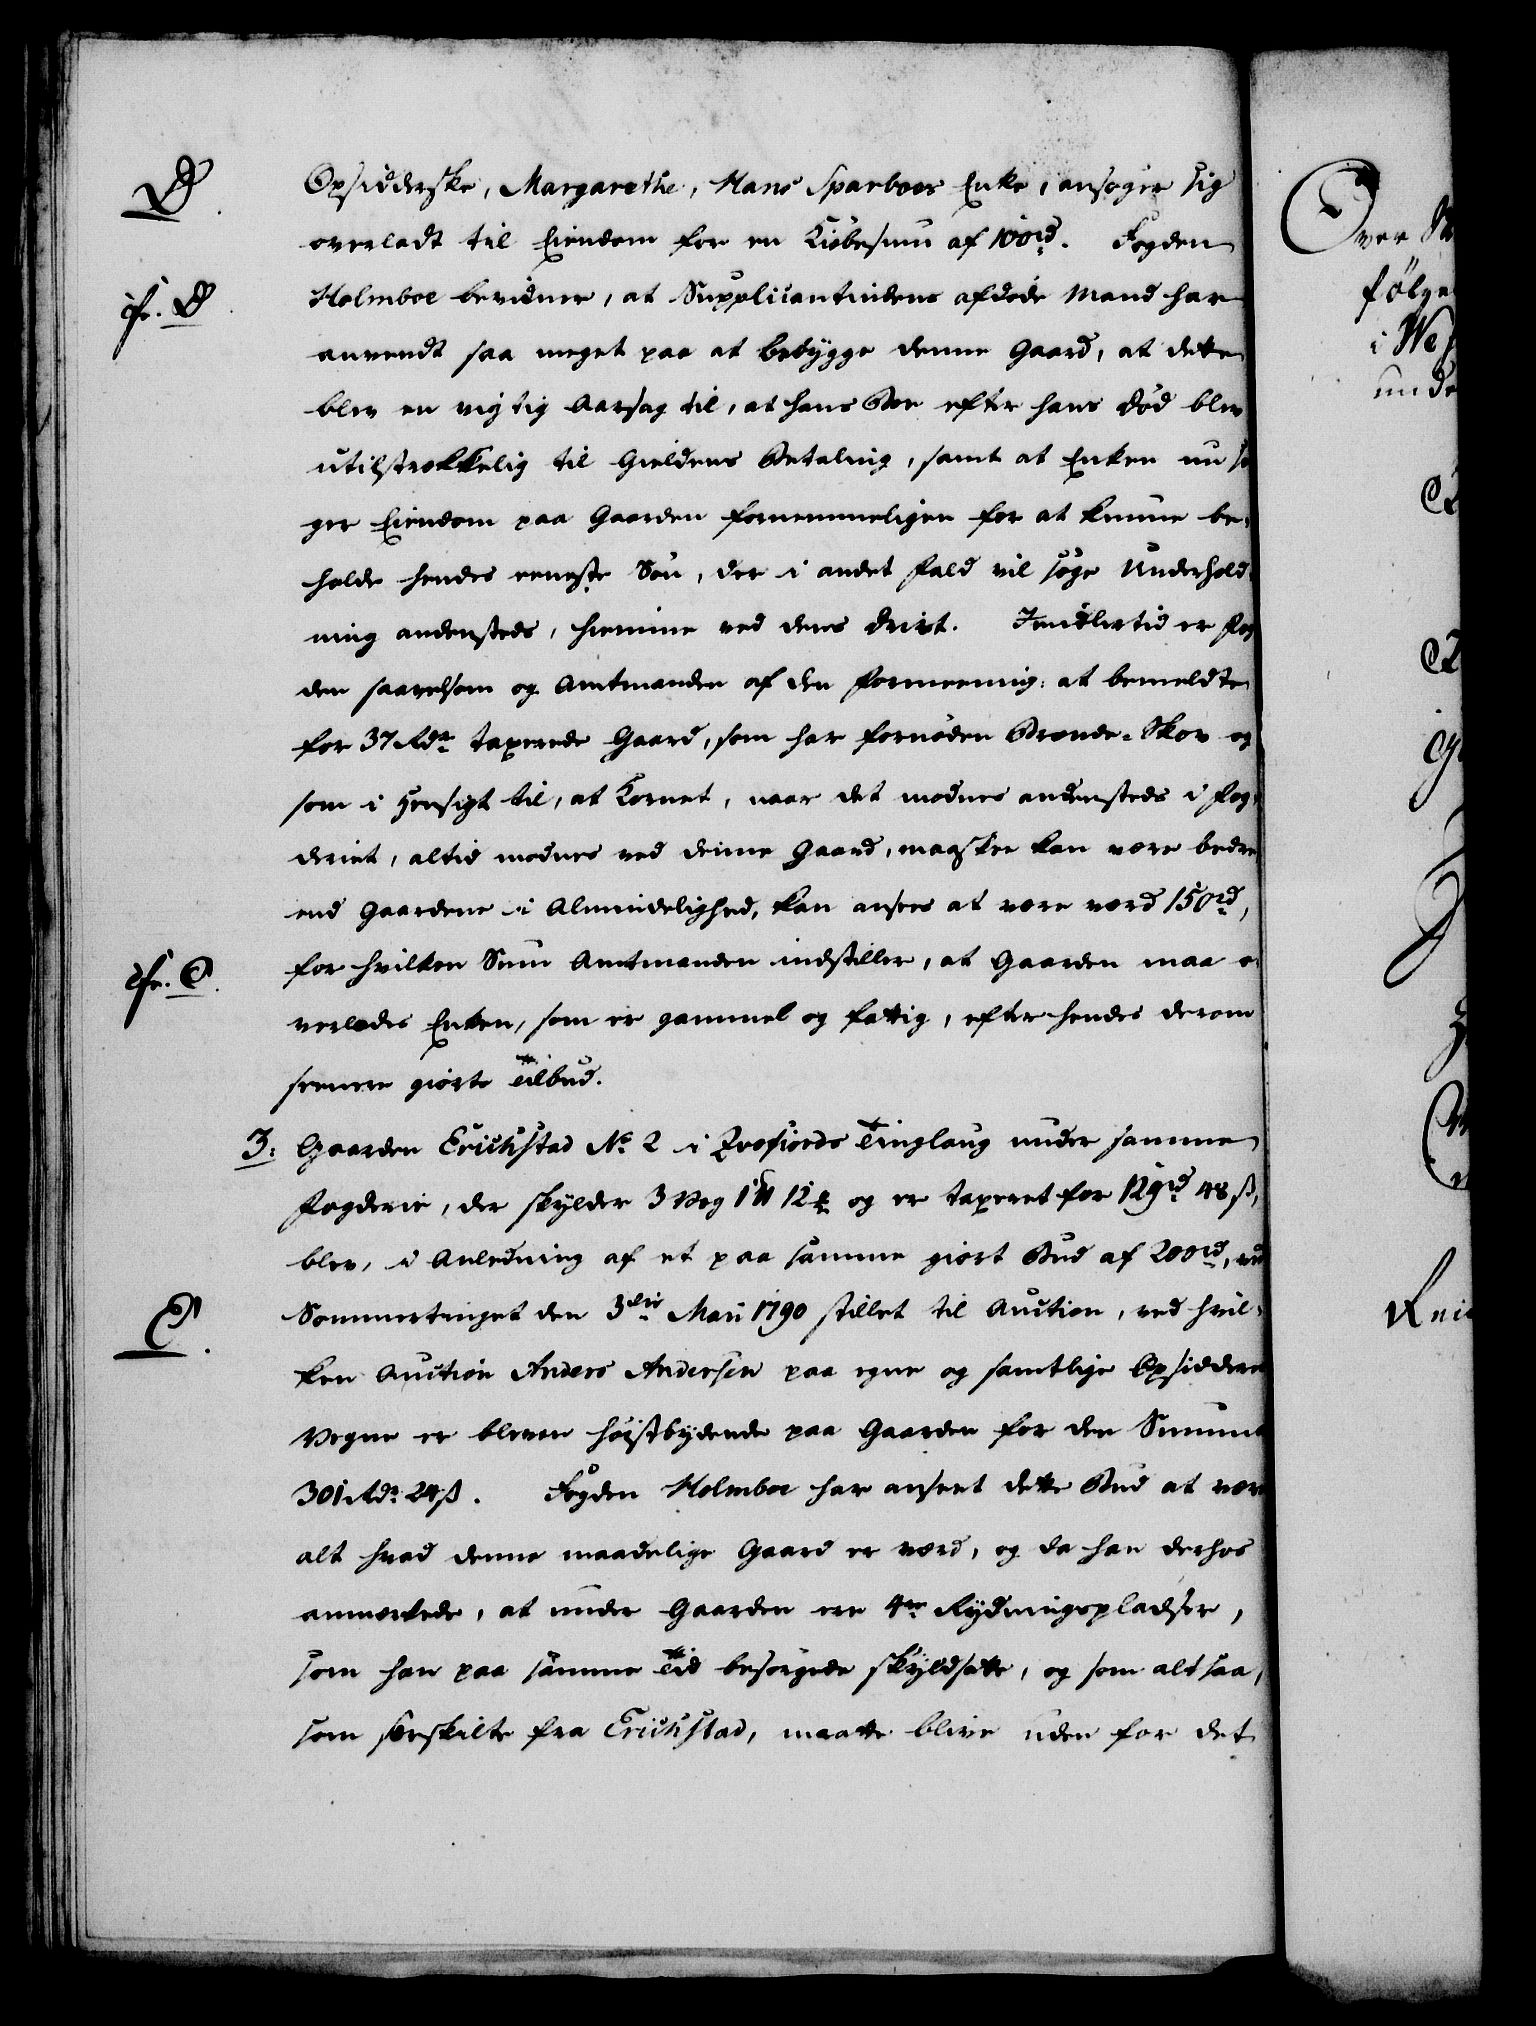 D.
Opsidderske, Margarethe, Hans Sparboes Enke, ansøger sig
overladt til Eiendom for en Kiøbesum af 100rd. Fogden
cfr. D.
Holmboe bevidner, at Supplicantindens afdøde Mand har
anvendt saa meget paa at bebygge denne Gaard, at dette
blev en vigtig Aarsag til, at hans Boe efter hans Død blev
utilstrækkelig til Gieldens Betaling, samt at Enken nu sø
ger Eiendom paa Gaarden fornemmeligen for at kunne be-
holde hendes eeneste Søn, der i andet Fald vil søge Underhold-
ning andensteds, hiemme ved dens Drivt. Imidlertid er Fog
den saavelsom og Amtmanden af den Formeening: at bemeldte
for 37 Rdr taxerede Gaard, som har fornøden Brænde-Skov og
som i Hensigt til, at Kornet, naar det modnes andensteds i Fog-
deriet, altid modnes ved denne Gaard, maaskee kan være bedre
end Gaardene i Almindelighed, kan ansees at være værd 150rd,
cfr. C.
for hvilken Sum Amtmanden indstiller, at Gaarden maa o-
verlades Enken, som er gammel og fattig, efter hendes derom
seenere giorte Tilbud.
3: Gaarden Erichstad No 2 i Qvæfiords Tinglaug under samme
Fogderie, der skylder 3 Vog 1 12 og er taxeret for 129rd 48 ß,
blev, i Anledning af et paa samme giort Bud af 200rd, ved
C.
Sommertinget den 3die Maii 1790 stillet til Auction, ved hvil-
ken Auction Anders Andersen paa egne og samtlige Opsidderes
Vegne er bleven høistbydende paa Gaarden for den Summa
301 Rdr 24 ß. Fogden Holmboe har anseet dette Bud at være
alt hvad denne maadelige Gaard er værd, og da han derhos
anmærkede, at under Gaarden ere 4re Rydningspladser,
som han paa samme Tid besørgede skyldsatte, og som altsaa,
som særskilte fra Erichstad, maatte blive uden for det
Over
følge
i We
unde